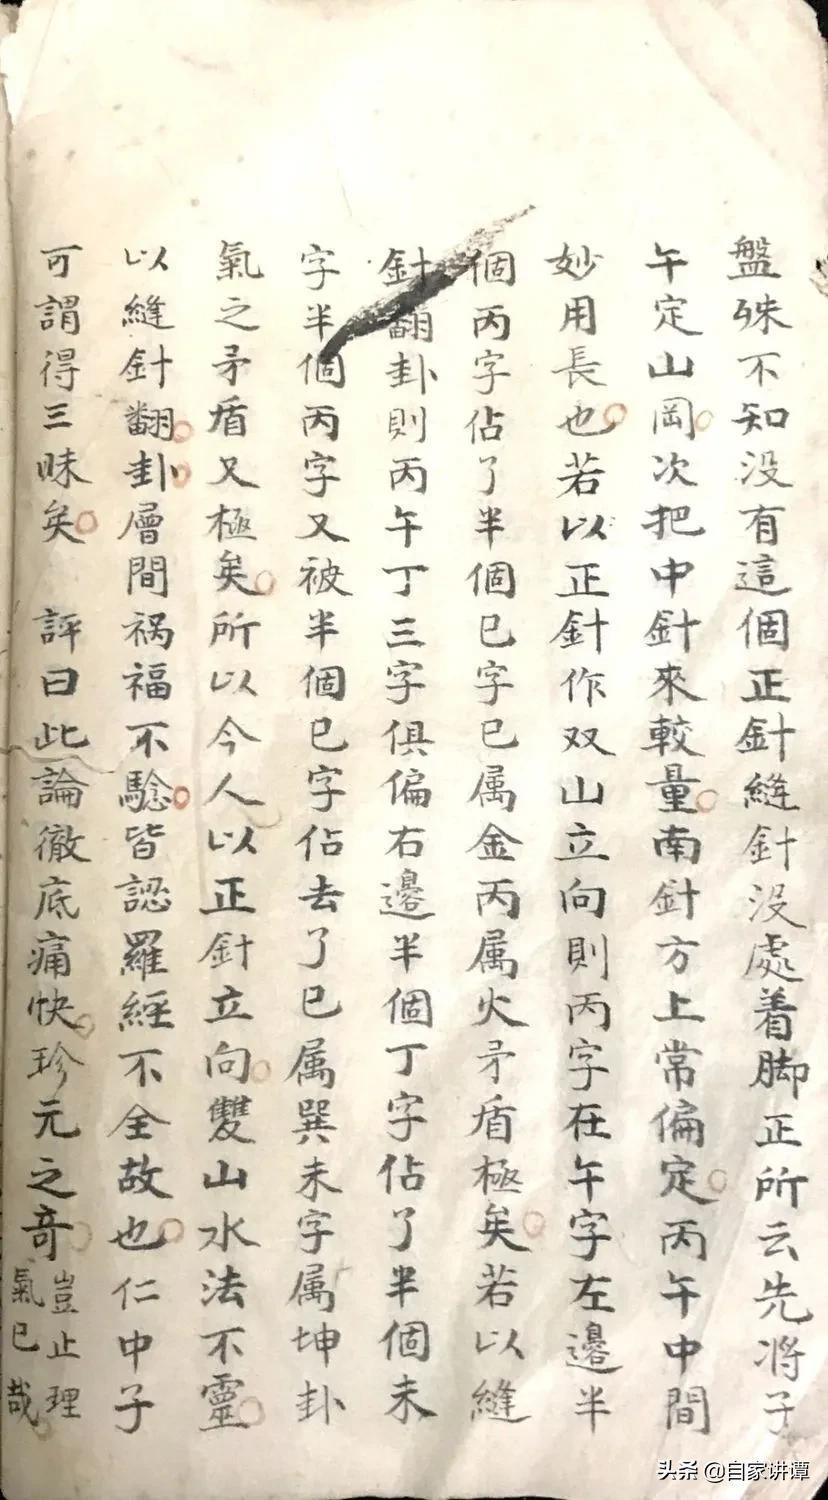 盤殊不知没有這個正針縫針没處着脚正所云先將子
午定山岡次把中針來較量南針方上常偏定丙午中間
妙用長也若以正針作双山立向則丙字在午字左邊半
個丙字佔了半個巳字巳属金丙属火矛盾極矣若以縫
針翻卦則丙午丁三字俱偏右邊半個丁字佔了半個未
字半個丙字又被半個巳字佔去了巳属巽未字属坤卦
氣之矛盾又極矣所以今人以正針立向雙山水法不靈
以縫針翻卦層間祸福不驗皆認羅經不全故也仁中子
可謂得三昧矣 評曰此論徹底痛快珍元之奇
豈止理
氣已哉
头条 @自家讲谭